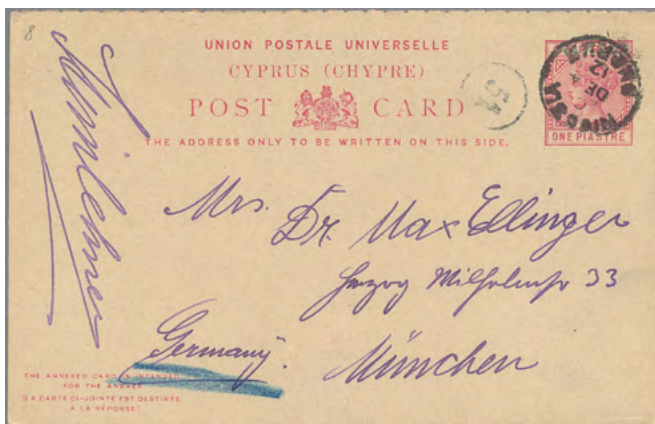 8
UNION POSTALE UNIVERSELLE
CYPRUS (CHYPRE)
POST CARD
THE ADDRESS ONLY TO BE WRITTEN ON THIS SIDE.
NICOSIA
DE 4
CYPRUS
ONE PIASTRE
Mrs. Dr. Max Ellinger
Herzog Wilhelmstr 33
München
Germany.
THE ANNEXED CARD IS INTENDED
FOR THE ANSWER
(LA CARTE CI-JOINTE EST DESTINÉE
A LA RÉPONSE)